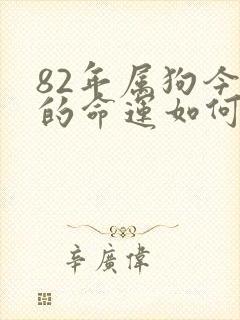 82年属狗今
的命运如何
辛廣偉